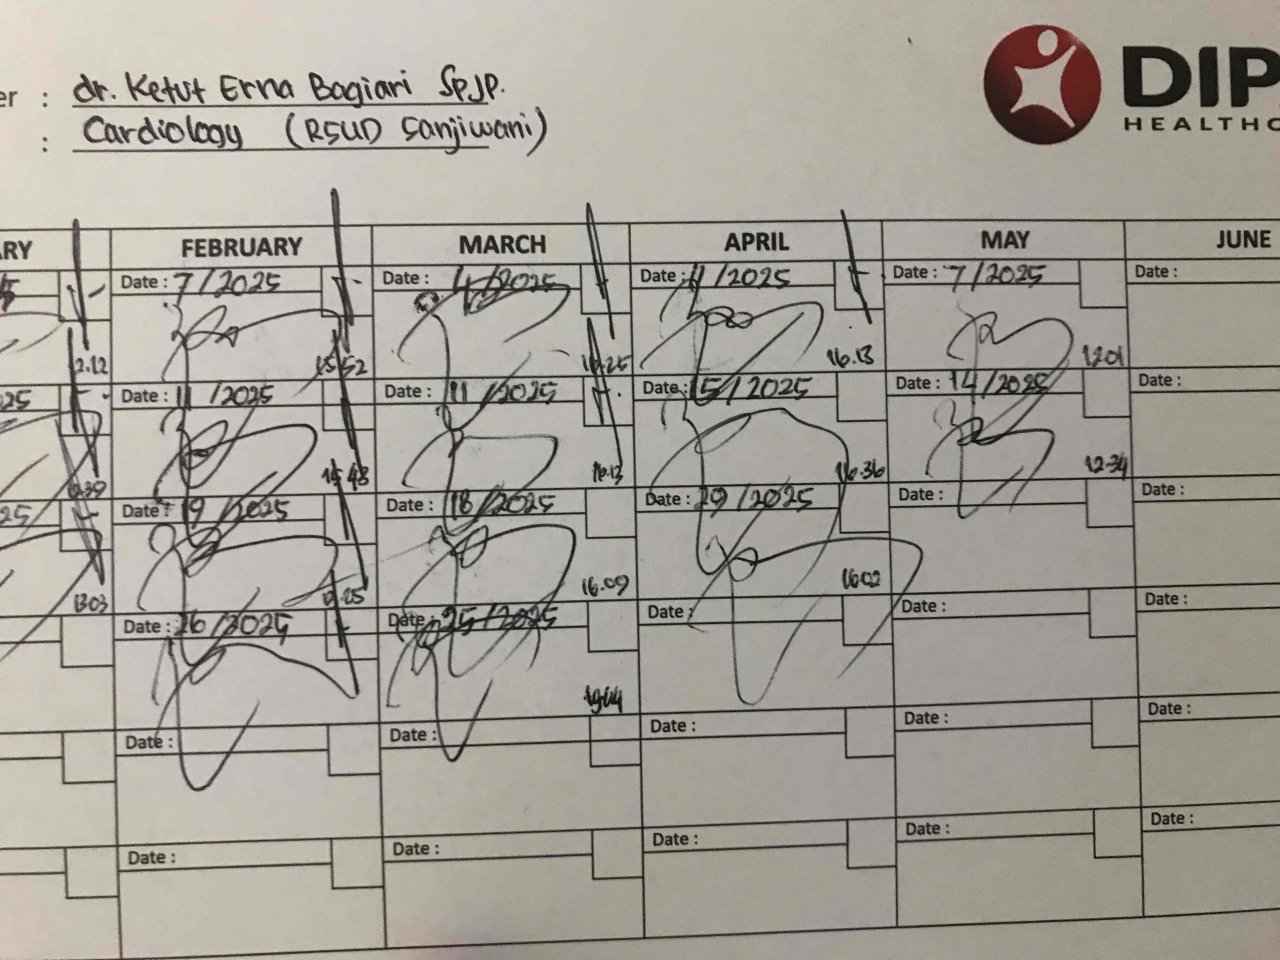 er : dr. Ketut Erna Bagiari SpJP.
: Cardiology (RSUD Sanjiwani)
DIP
HEALTHC
ARY FEBRUARY MARCH APRIL MAY JUNE
Date : 7/2025 Date : 4/2025 Date : /2025 Date : 7/2025 Date :
2.12 15.52 16.25 16.13 12.01
25 Date : 11/2025 Date : 11/2025 Date : 15/2025 Date : 14/2025 Date :
.39 15.48 16.13 16.36 12.34
25 Date : 19/2025 Date : 18/2025 Date : 29/2025 Date : Date :
13.03 .25 16.09 16.02
Date : 26/2025 Date : 25/2025 Date : Date : Date :
Date : Date : Date : Date : Date :
Date : Date : Date : Date : Date :